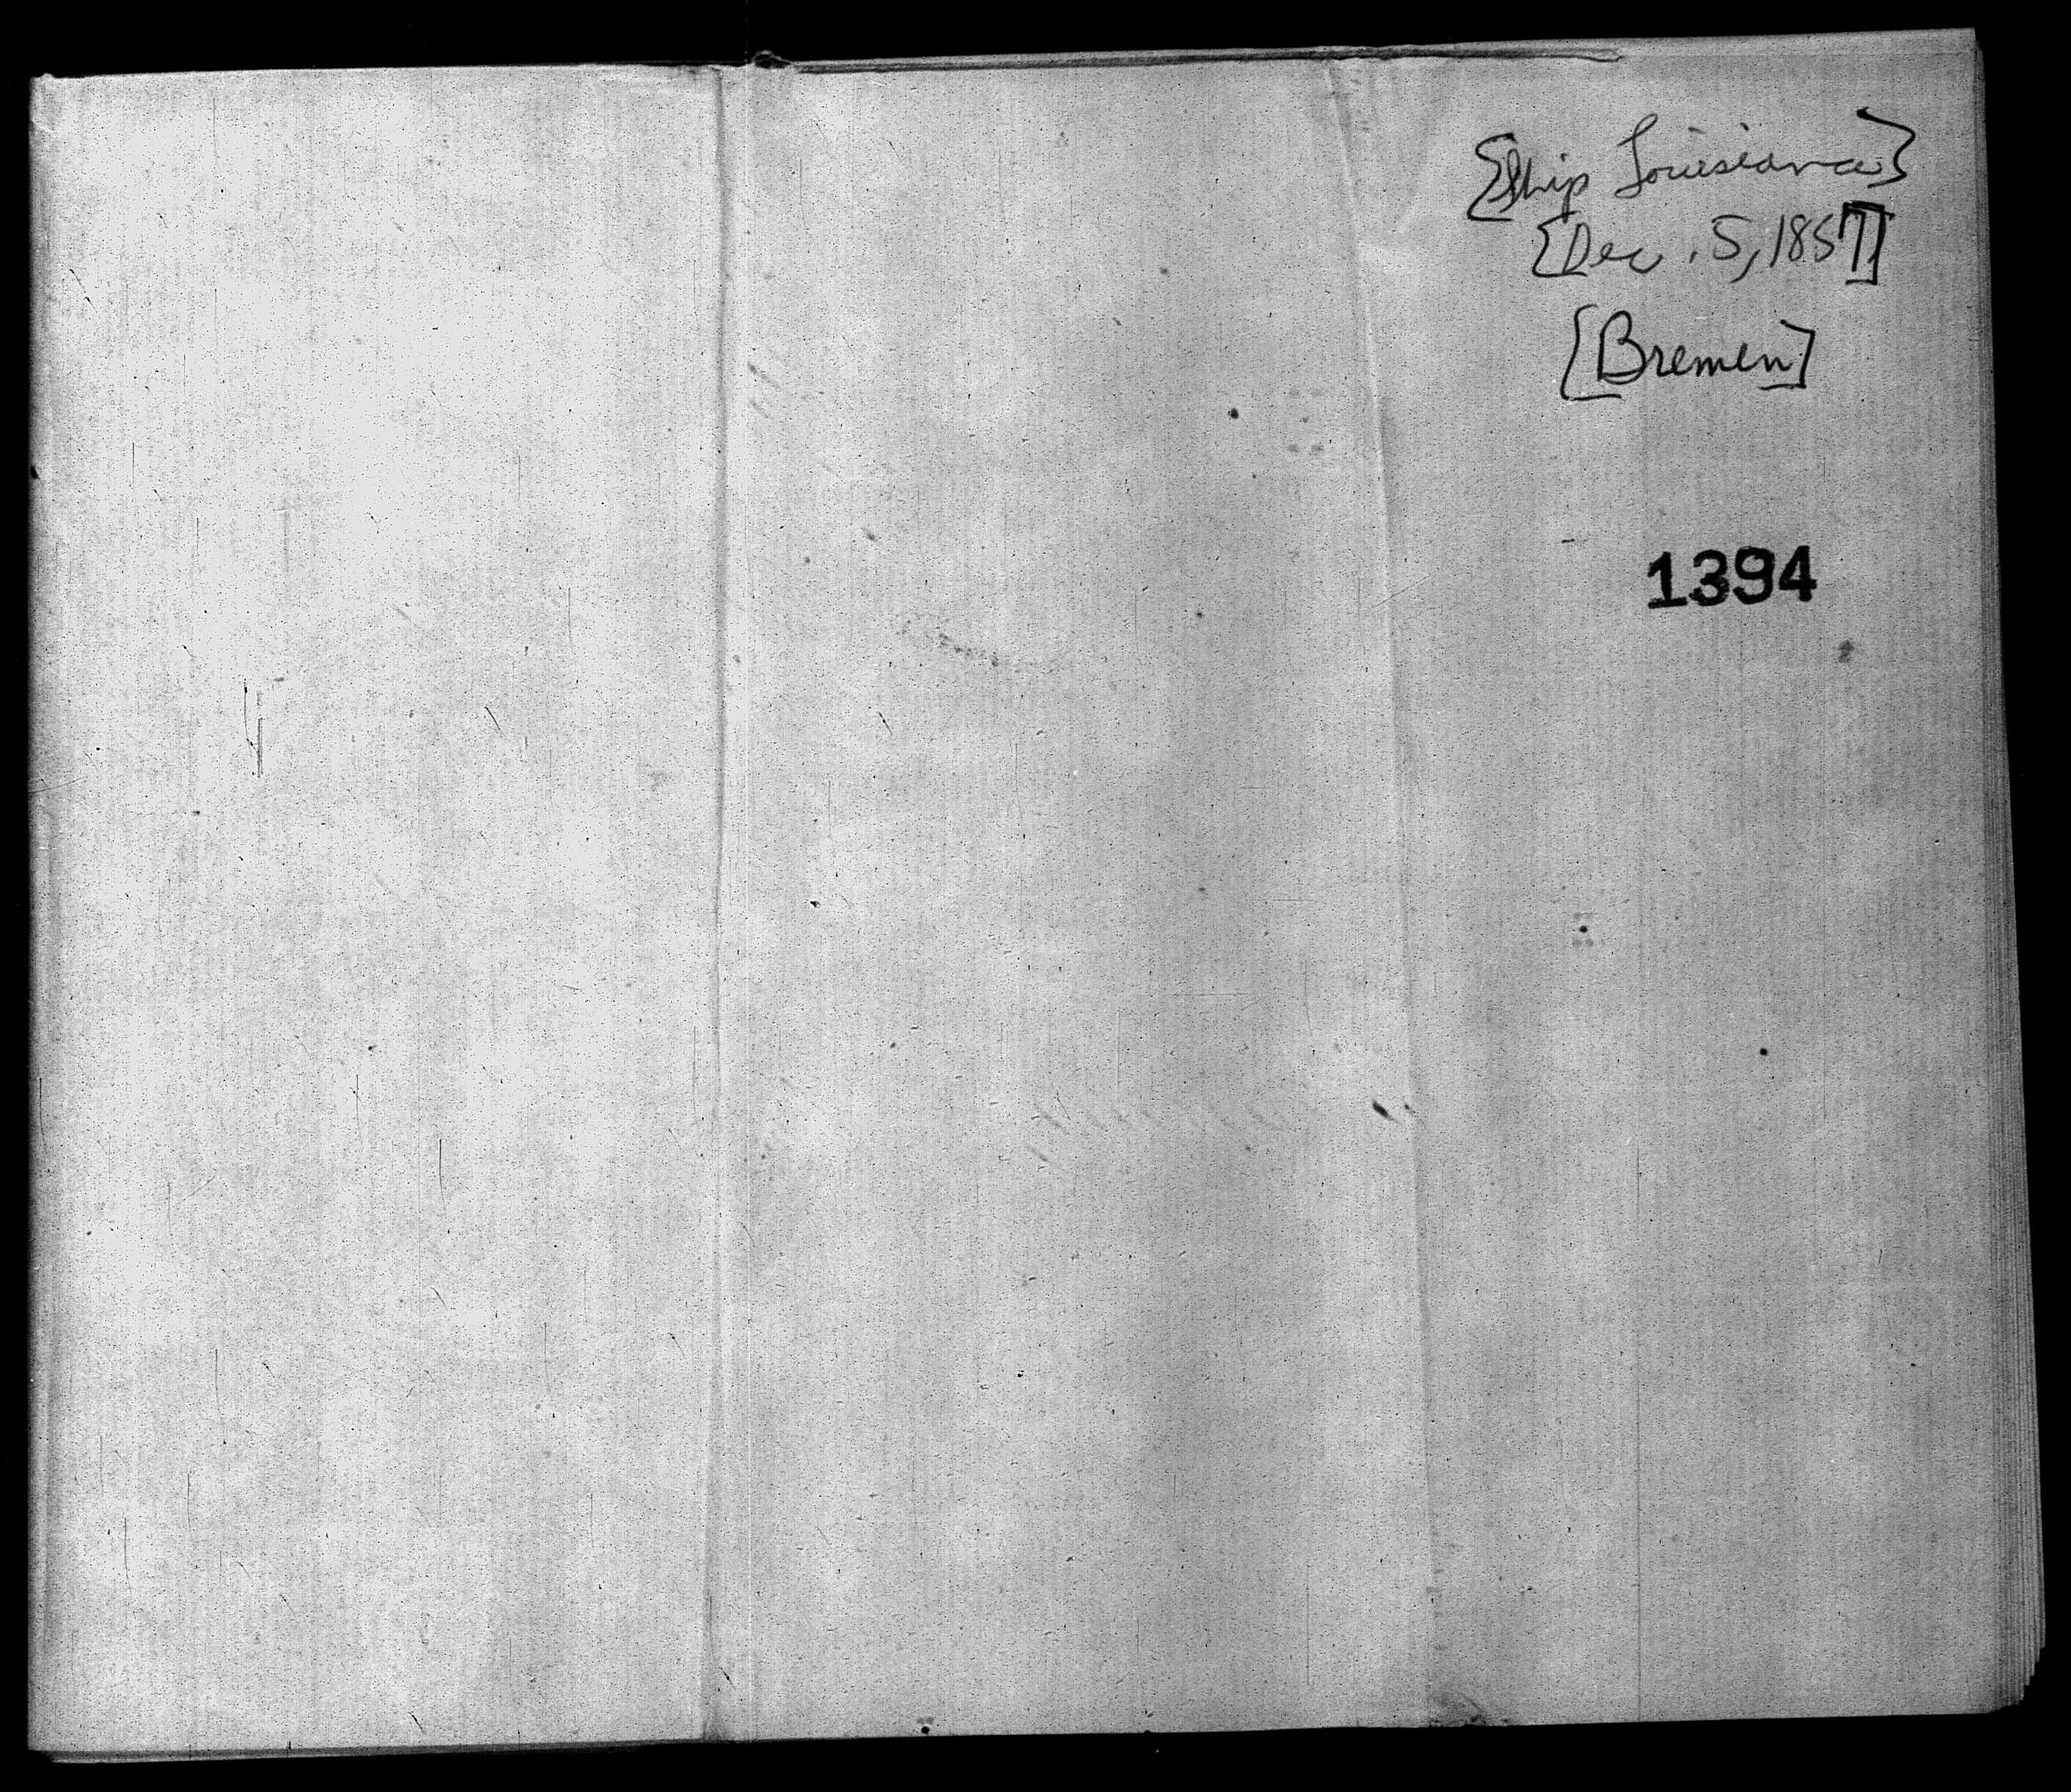 [Ship Louisiana]
[Dec. 5, 1857]
[Bremen]
1394